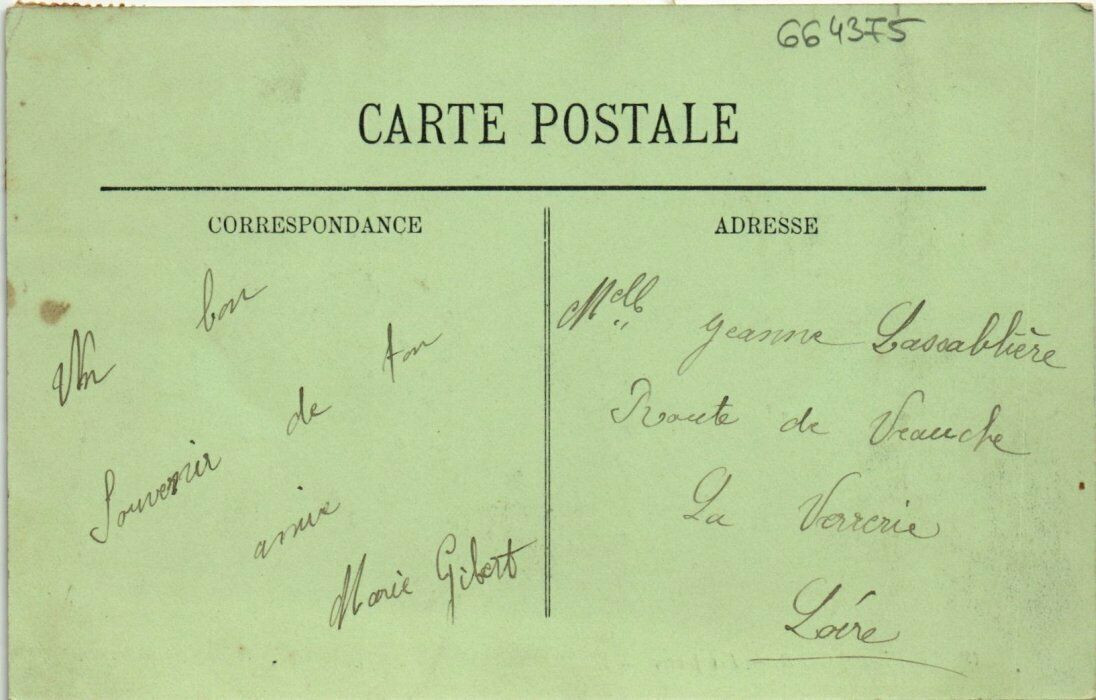 664375
CARTE POSTALE
CORRESPONDANCE
Un bon
Souvenir de ton
amie
Marie Gibert
ADRESSE
Melle Jeanne Lassablière
Route de Veauche
La Verrerie
Loire